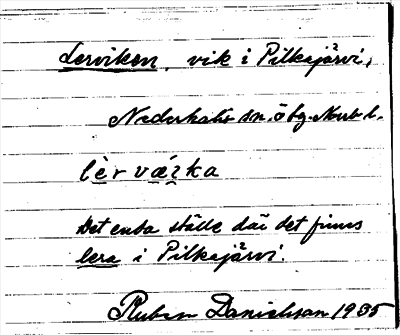 Lerviken, vik i Pilkajärvi,
Nederkalix sn. öbg. Norrb. l.
lèr vǽịka
Det enda ställe där det finns
lera i Pilkajärvi.
Ruben Danielsson 1935